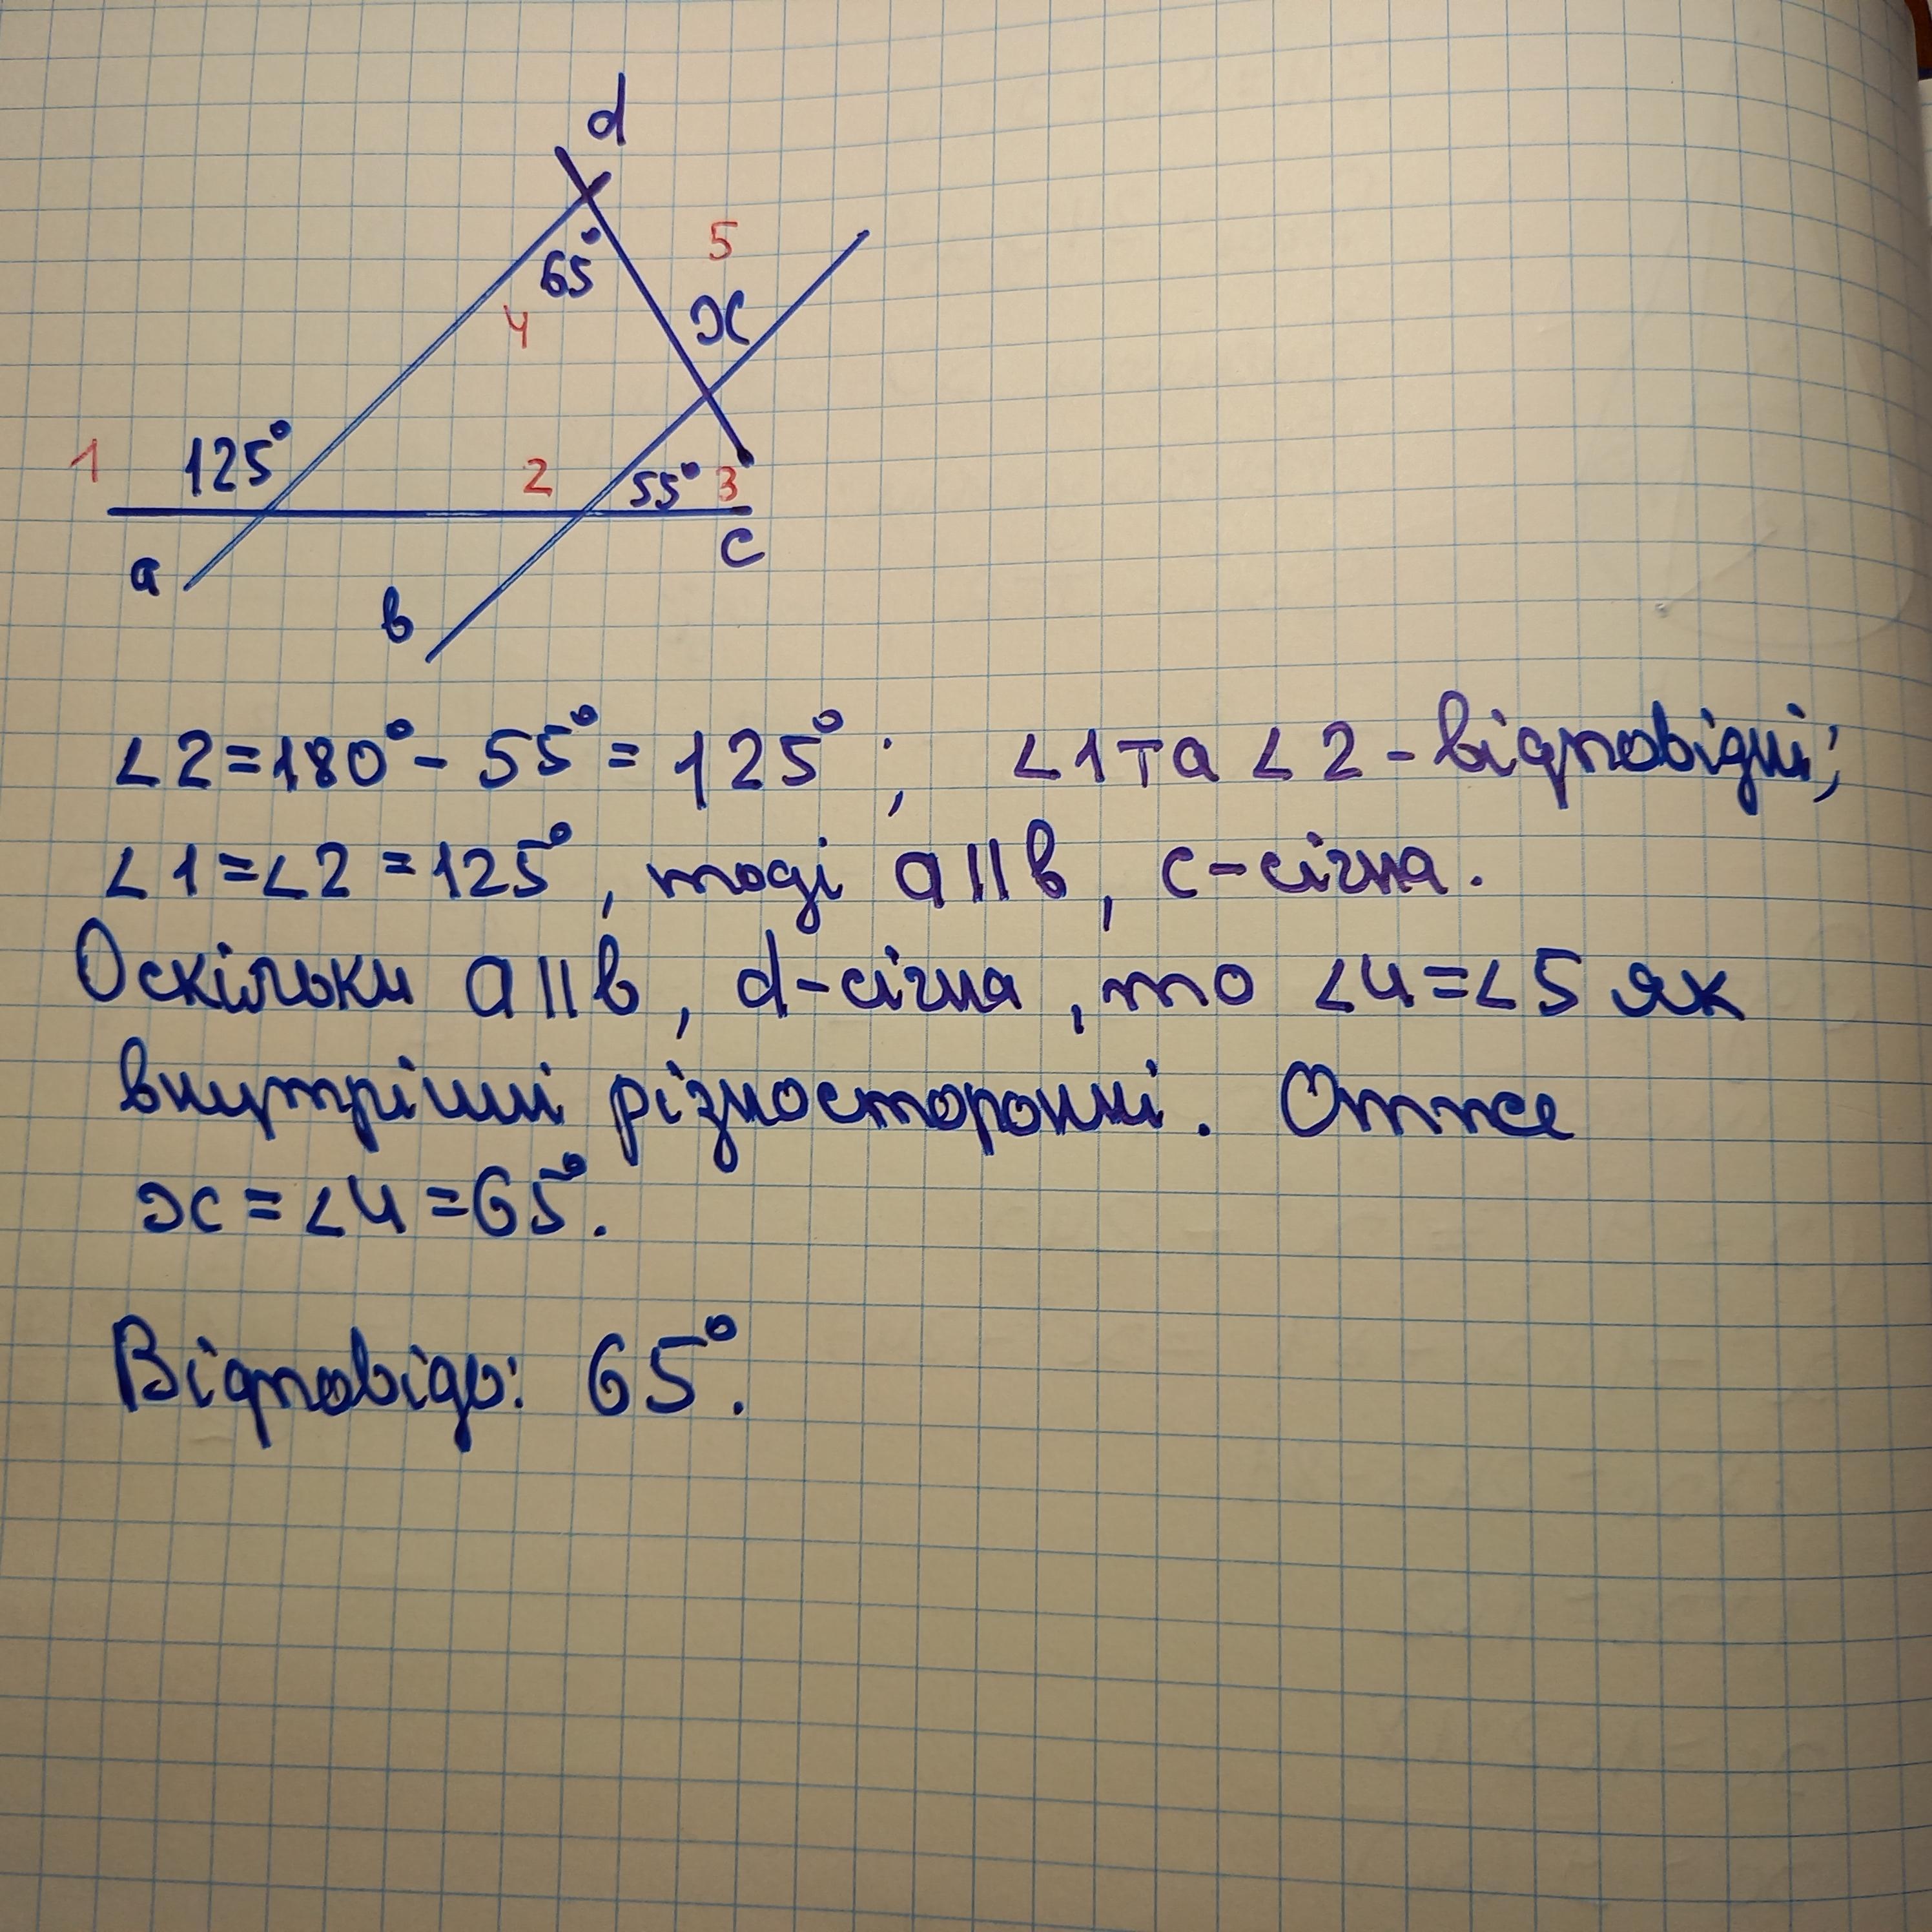 d
5
65°
x
4
125°
1
2
55° 3
c
a
в
∠2=180°-55°=125°; ∠1 та ∠2-відповідні;
∠1=∠2=125°, тоді a||в, c-січна.
Оскільки a||в, d-січна, то ∠4=∠5 як
внутрішні різносторонні. Отже
x=∠4=65°.
Відповідь: 65°.